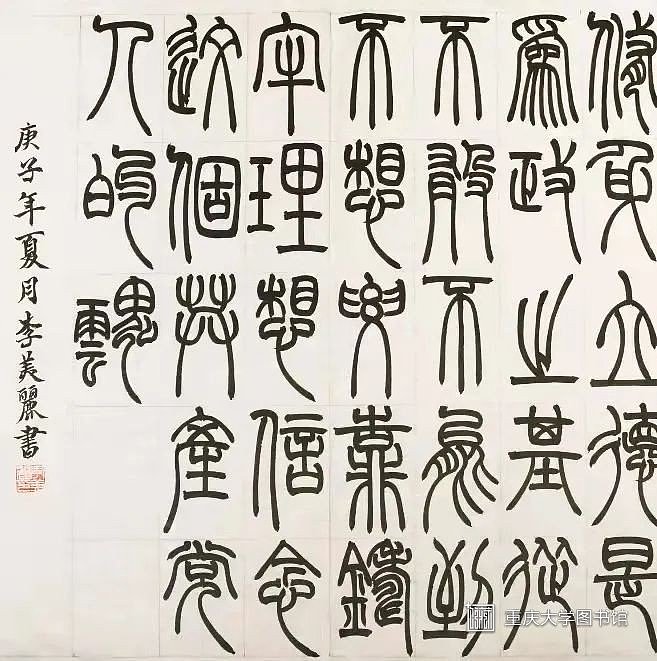 修身立德是
為政之基從
不敢不能到
不想要靠鑄
牢理想信念
這個共產黨
人的魂
庚子年夏月李美麗書
重庆大学图书馆